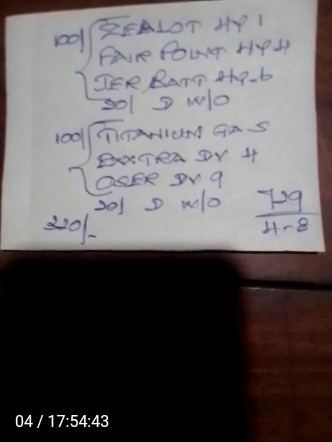 100/ ZEALOT HY 1
FAIR POINT HY 4
JER BATT HY-6
20/ D W/O
100/ TITANIUM GAS
EXXTRA DV 4
OSER DV 9
20/ D W/O
220/-
729
4-8
04 / 17:54:43